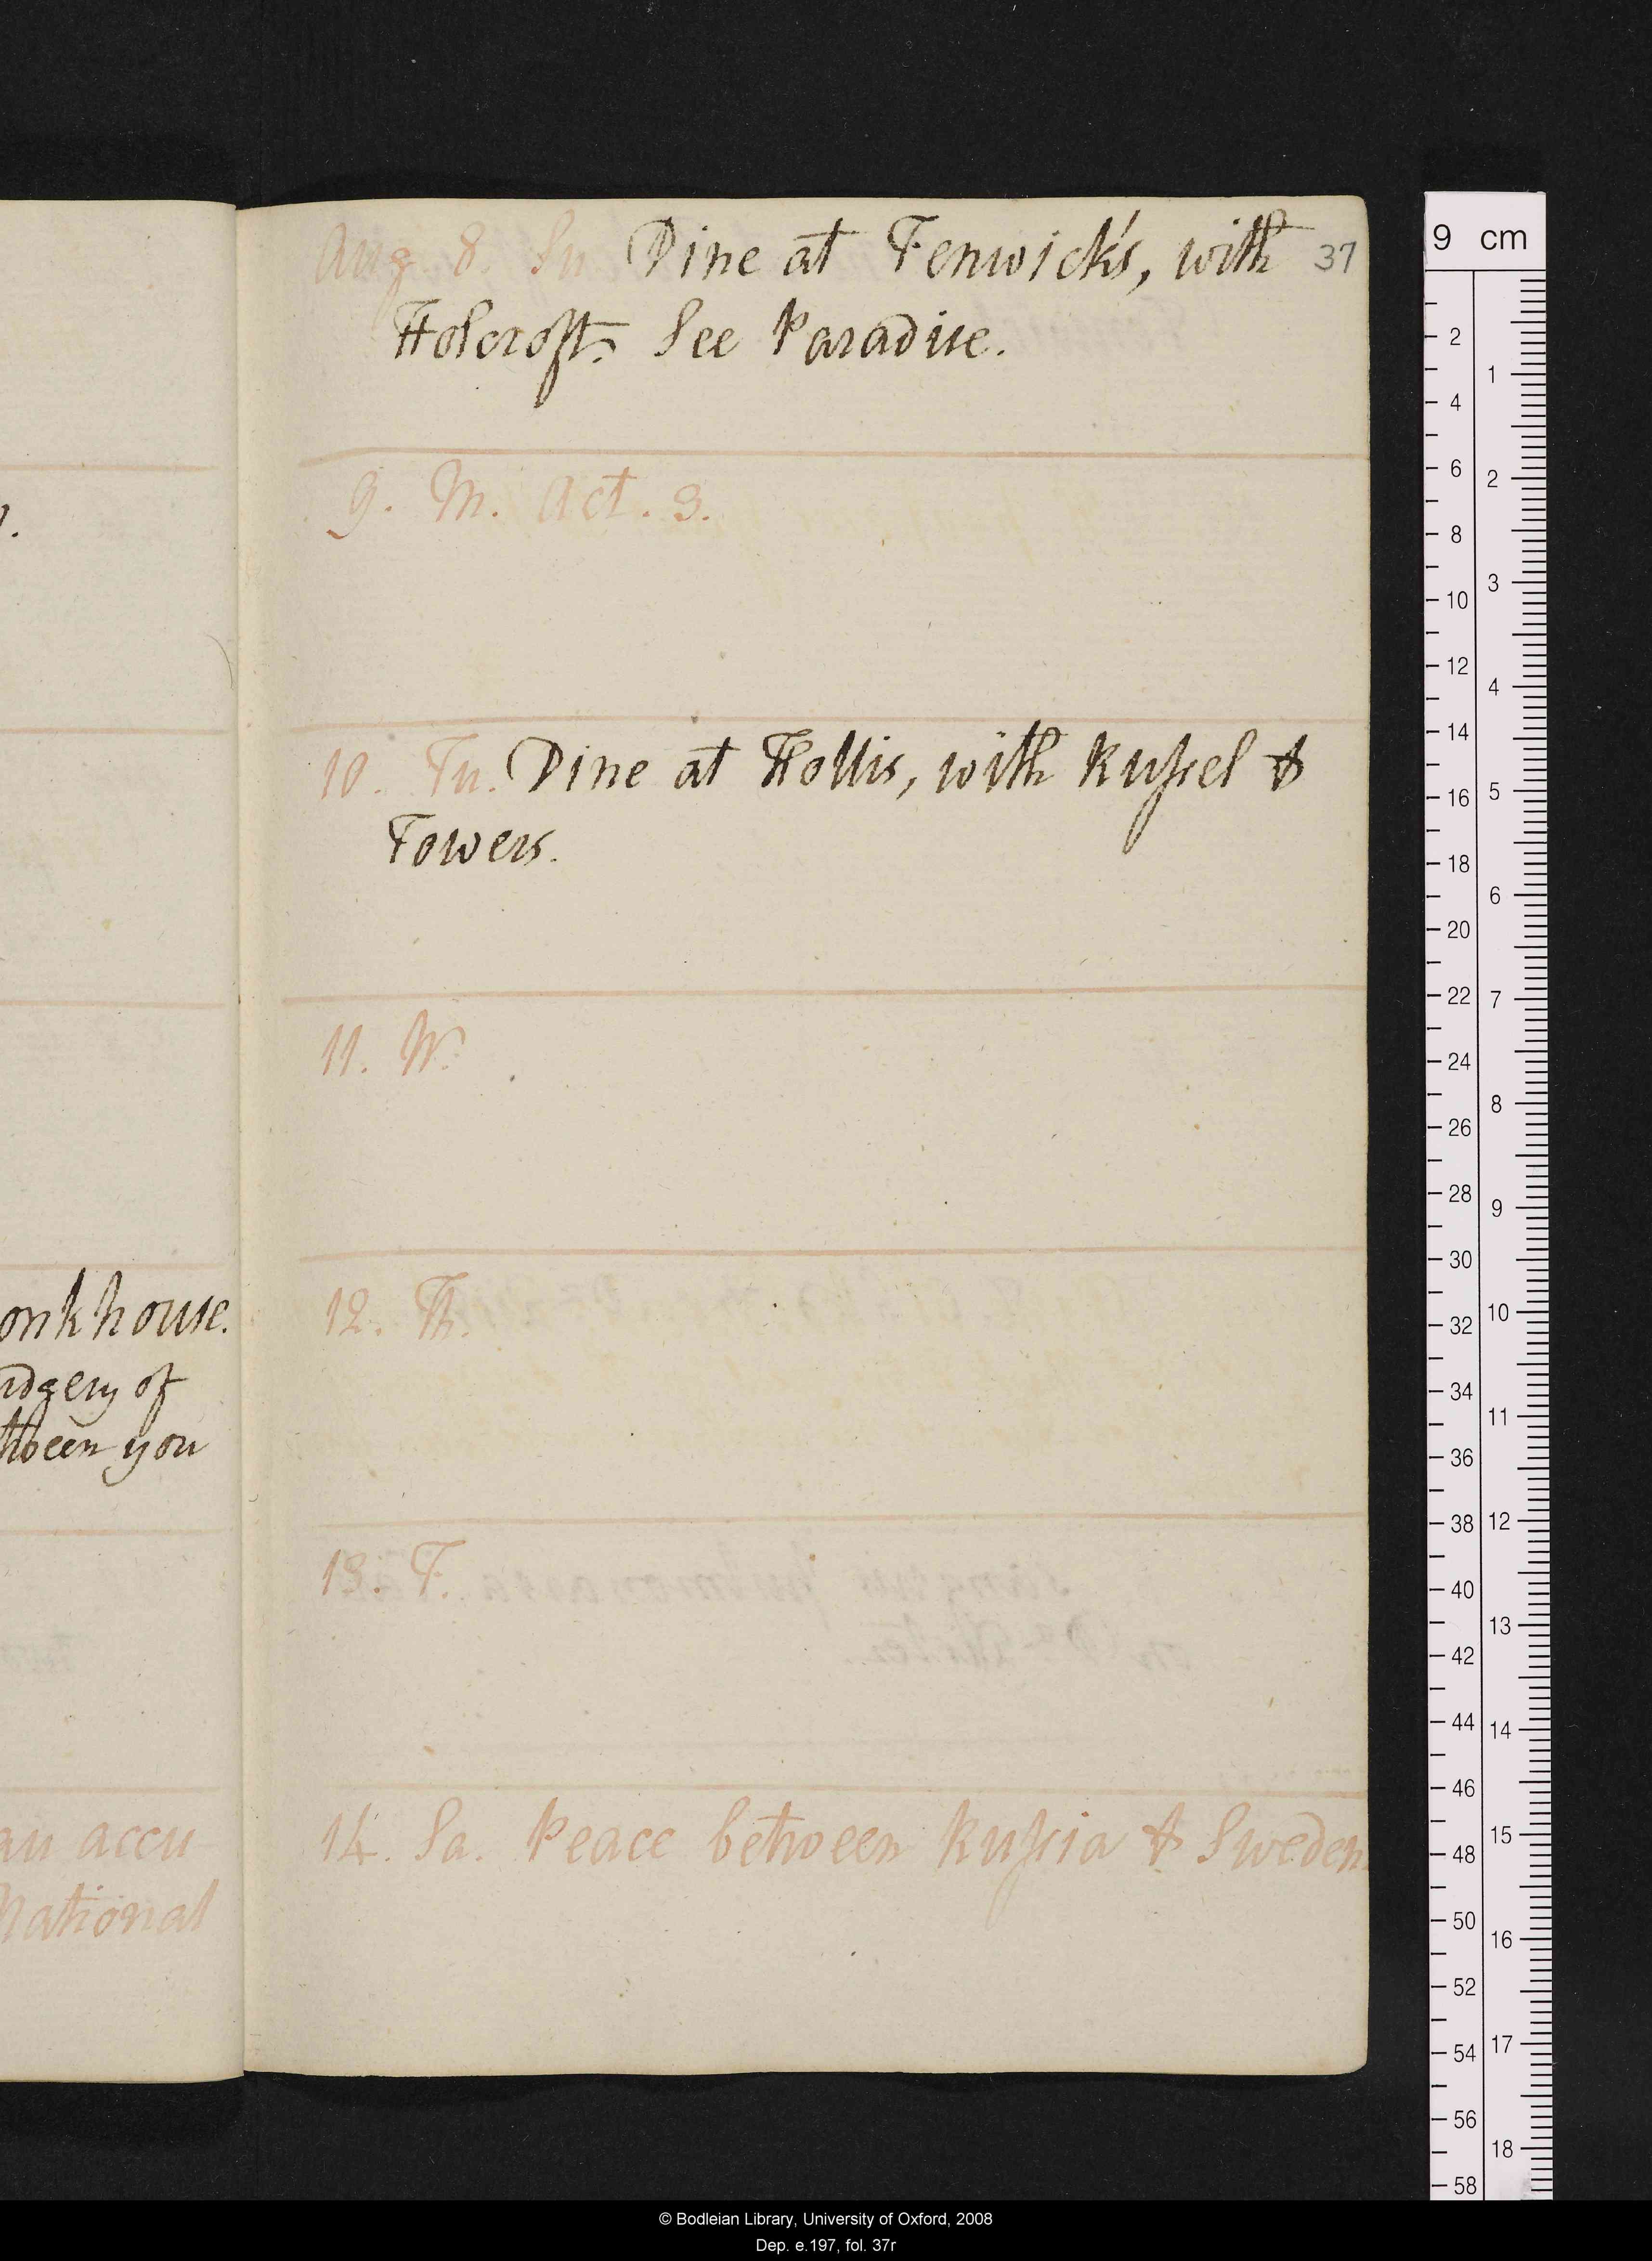 Aug 8. Su Dine at Fenwick's, with 37
Holcroft. See Paradise.
9. M. Act. 3.
10. Tu. Dine at Hollis, with Russel &
Towers.
11. W.
12. Th.
13. F.
14. Sa. Peace between Russia & Sweden.
onkhouse.
dgery of
tween you
au accu
National
9 cm
2
4
6
8
10
12
14
16
18
20
22
24
26
28
30
32
34
36
38
40
42
44
46
48
50
52
54
56
58
1
2
3
4
5
6
7
8
9
10
11
12
13
14
15
16
17
18
© Bodleian Library, University of Oxford, 2008
Dep. e.197, fol. 37r